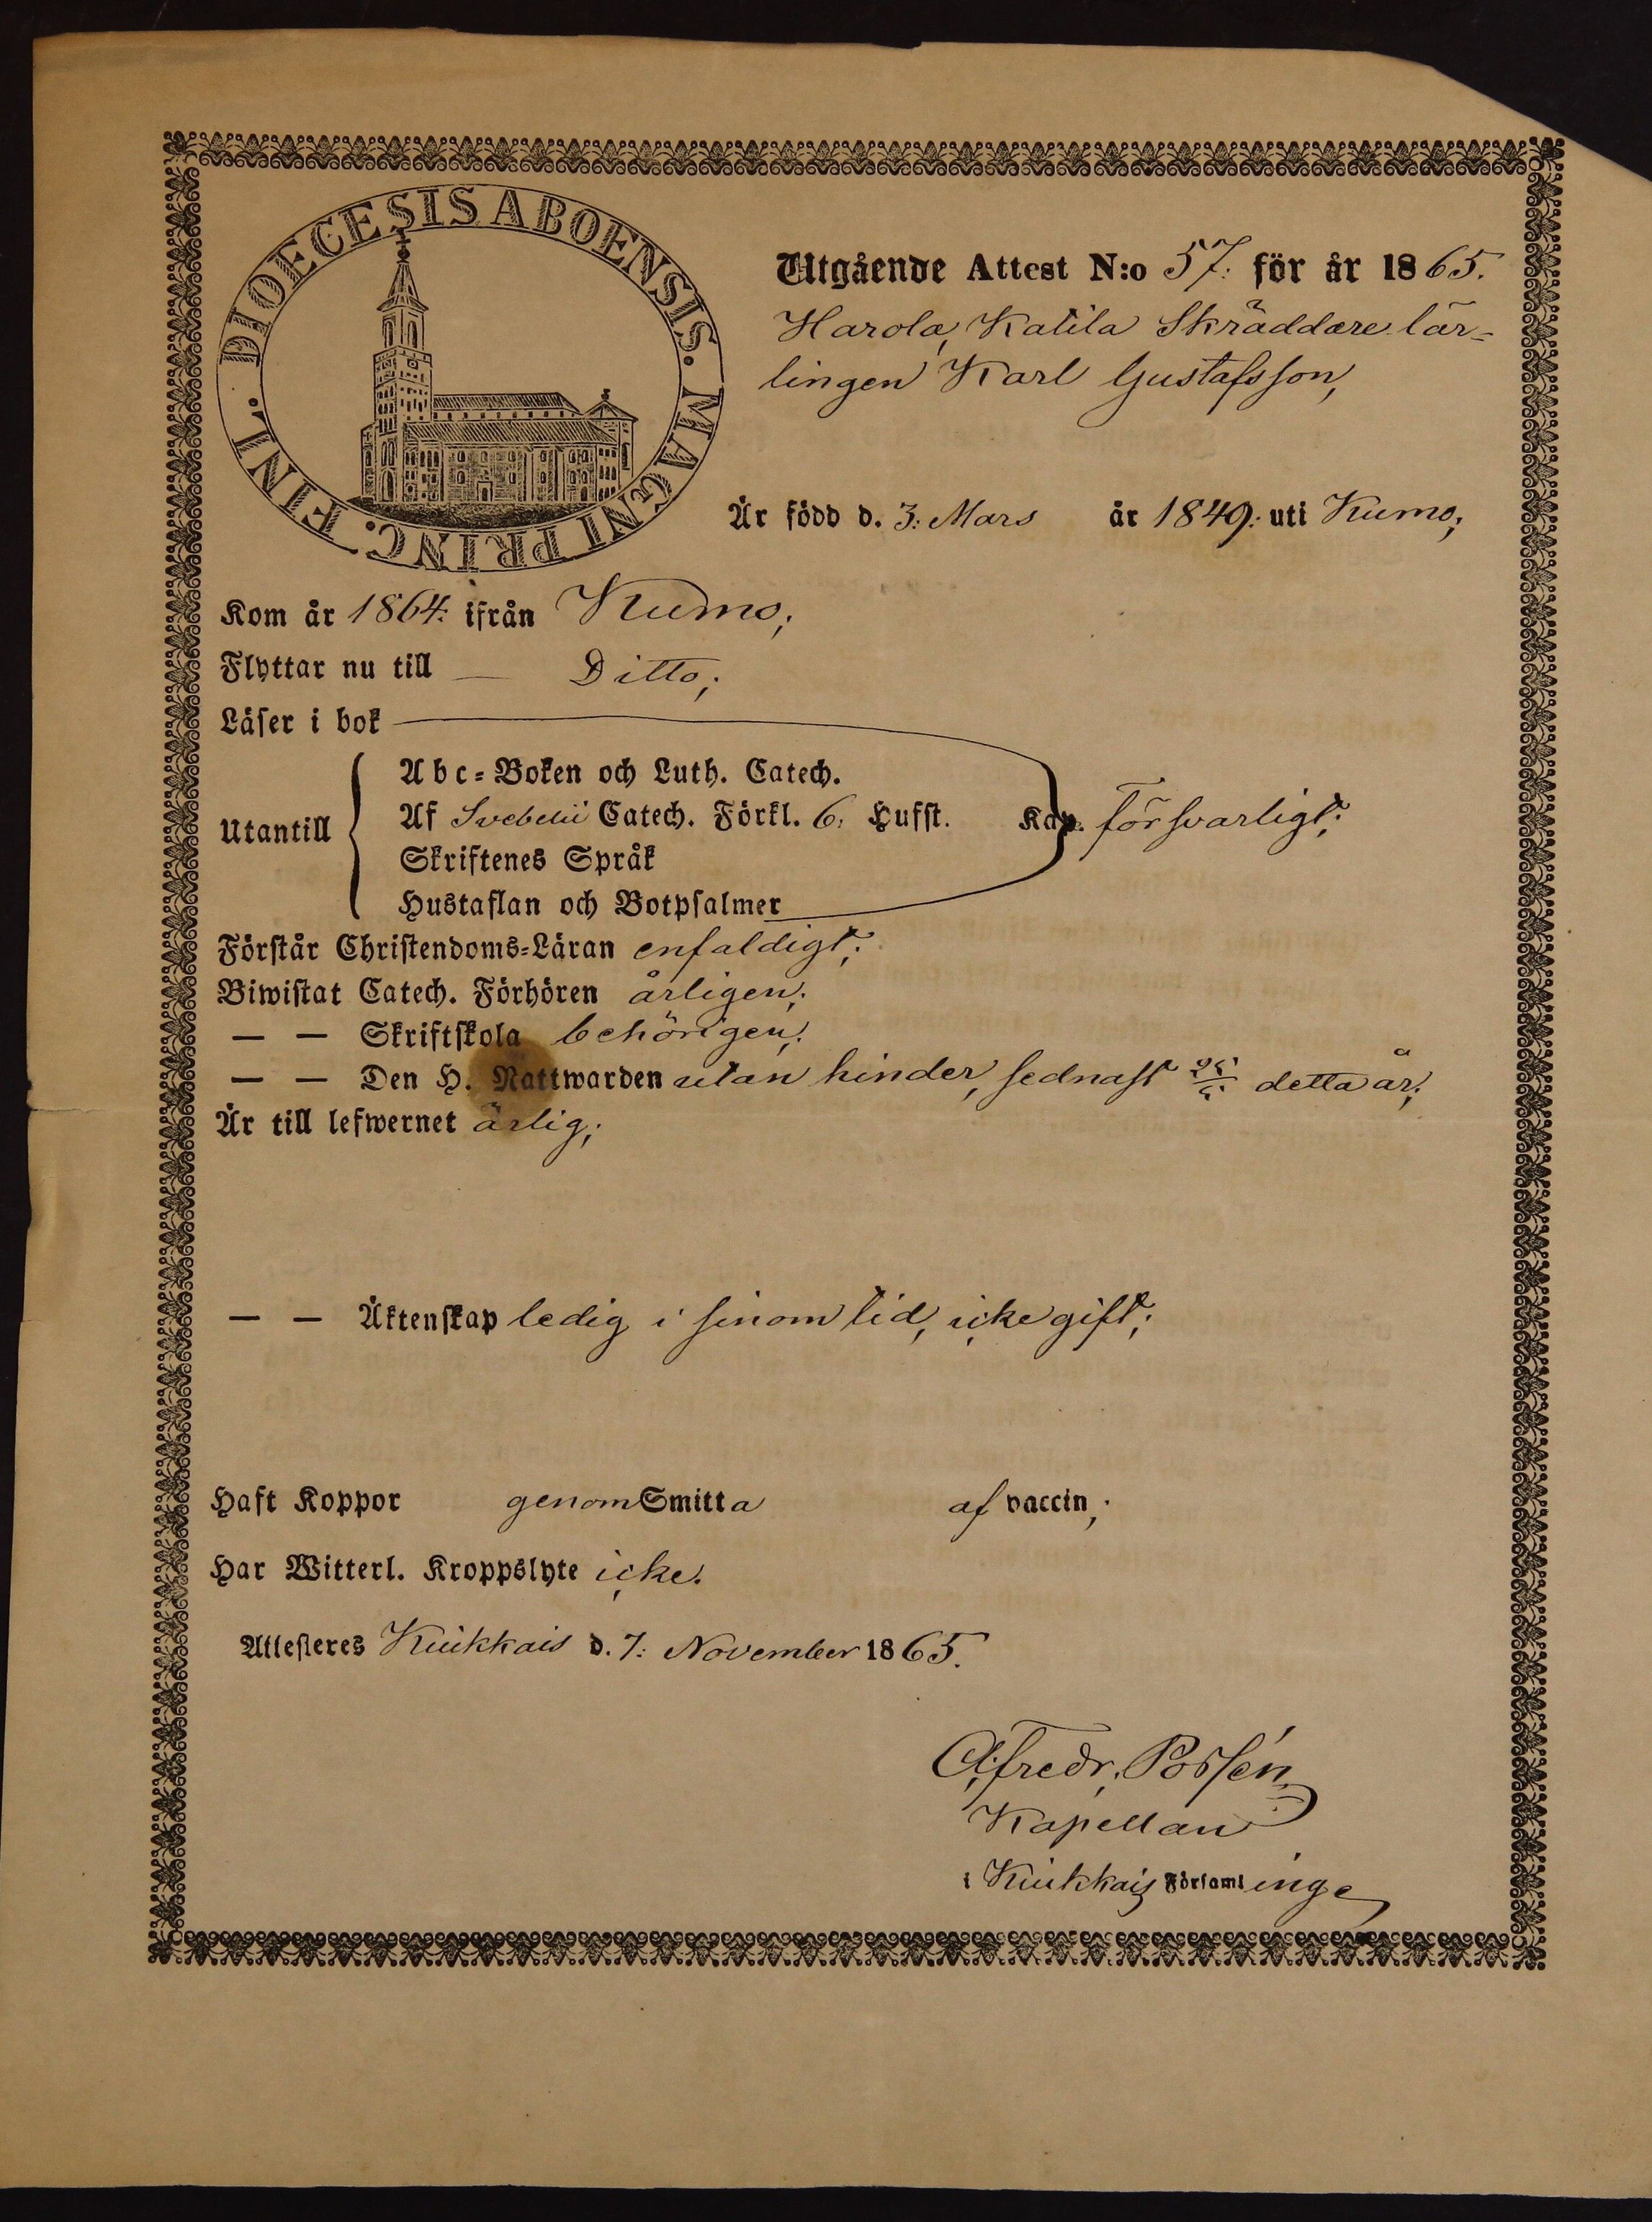 DIOECESIS ABOENSIS. MAGNI PRINC. FINL.
Utgående Attest N:o 57. för år 1865.
Harola, Katila Skräddare lär-
lingen Karl Gustafsson,
Är född d. 3: Mars år 1849: uti Kumo;
Kom år 1864: ifrån Kumo;
Flyttar nu till — Ditto;
Läser i bok
Utantill
Abc-Boken och Luth. Catech.
Af Svebelii Catech. Förkl. 6. Hufst. Kap. försvarligt;
Skriftenes Språk
Hustaflan och Botpsalmer
Förstår Christendoms-Läran enfaldigt;
Biwistat Catech. Förhören årligen;
— — Skriftskola behörigen;
— — Den H. Nattwarden utan hinder, sednast detta år;
Är till lefwernet ärlig;
— — Äktenskap ledig i sinom tid, icke gift;
Haft Koppor genom Smitta af vaccin;
Har Witterl. Kroppslyte icke.
Attesteres Kiukkais d. 7: November 1865.
A. Fredr. Possén
Kapellan
i Kiukkais Församlinge